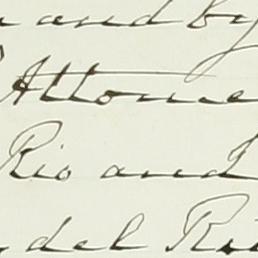 and by
Attorne
Rio and
del R